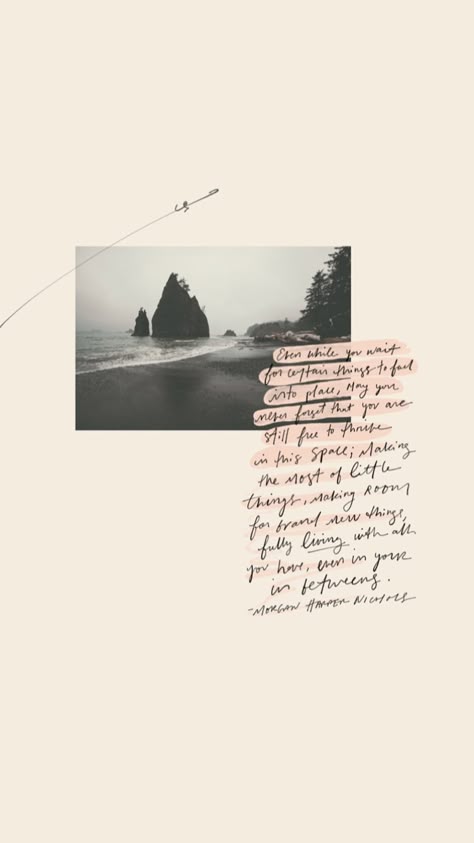 Even while you wait
for certain things to fall
into place, May you
never forget that you are
still free to thrive
in this space; Making
the most of little
things, making room
for brand new things,
fully living with all
you have, even in your
in betweens.
-MORGAN HARPER NICHOLS